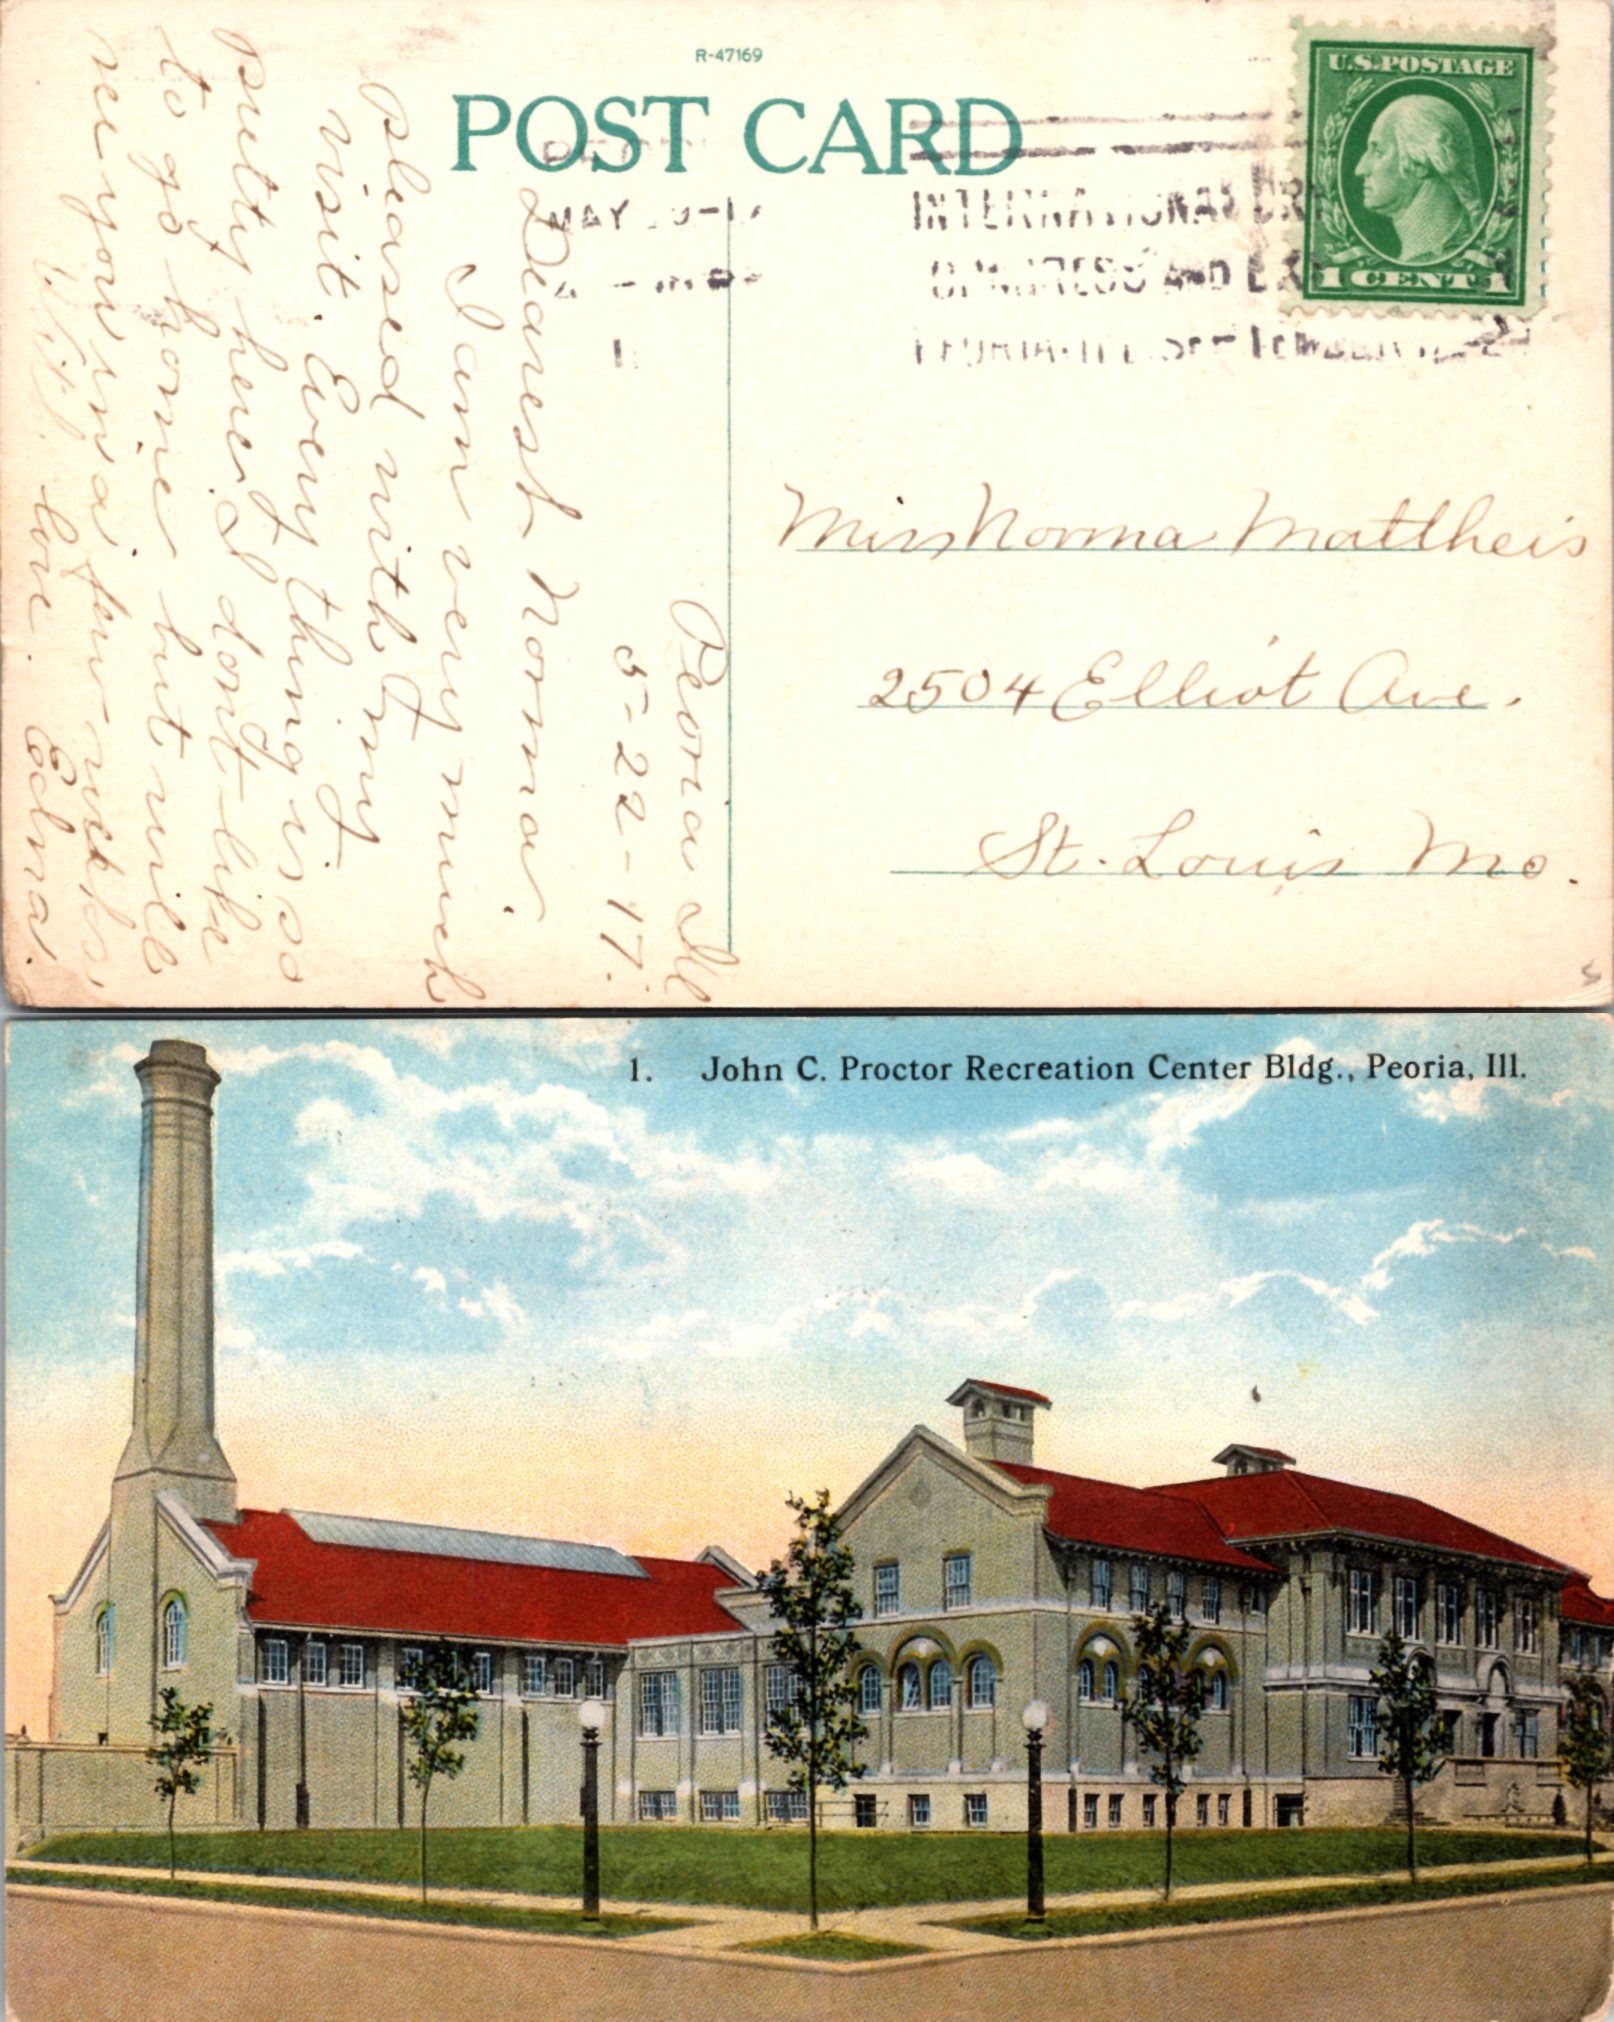 R-47169
POST CARD
U.S. POSTAGE
1 CENT 1
MAY
INTERNATIONAL
AND
Peoria Ill
5-22-17.
Dearest Norma
I am very much
pleased with my
visit. Every thing is so
pretty here. I dont like
to go home but will
see you in a few weeks.
With love. Edna.
Miss Norma Mattheis
2504 Elliot Ave.
St. Louis Mo.
1. John C. Proctor Recreation Center Bldg., Peoria, Ill.